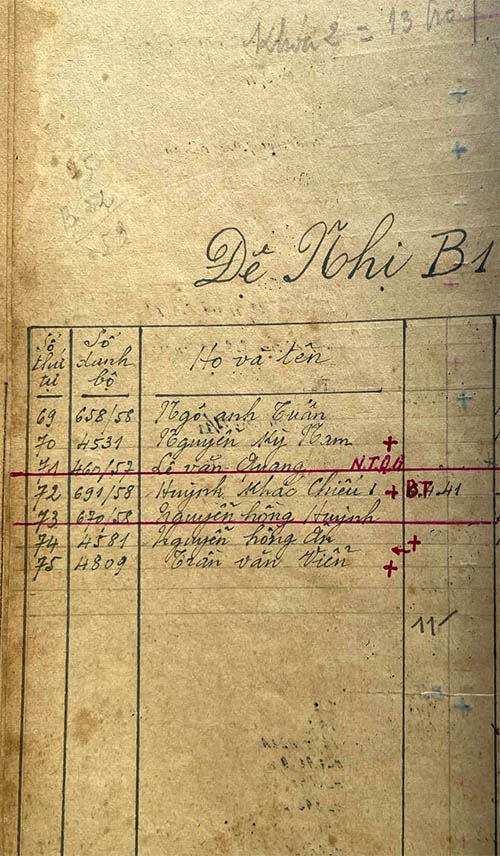 Khóa 2 = 13 trò
Đệ Nhị B1
Số thứ tự Số danh bộ Họ và tên
69 658/58 Ngô anh Tuấn
70 4531 Nguyễn Kỳ Nam +
71 460/57 Lê văn Quang N.T.Q.G
72 691/58 Huỳnh Khắc Chiếu 1 + B.T. 4.41
73 670/58 Nguyễn hồng Huỳnh
74 4581 Nguyễn hồng Ân +
75 4809 Trần văn Viễn +
11